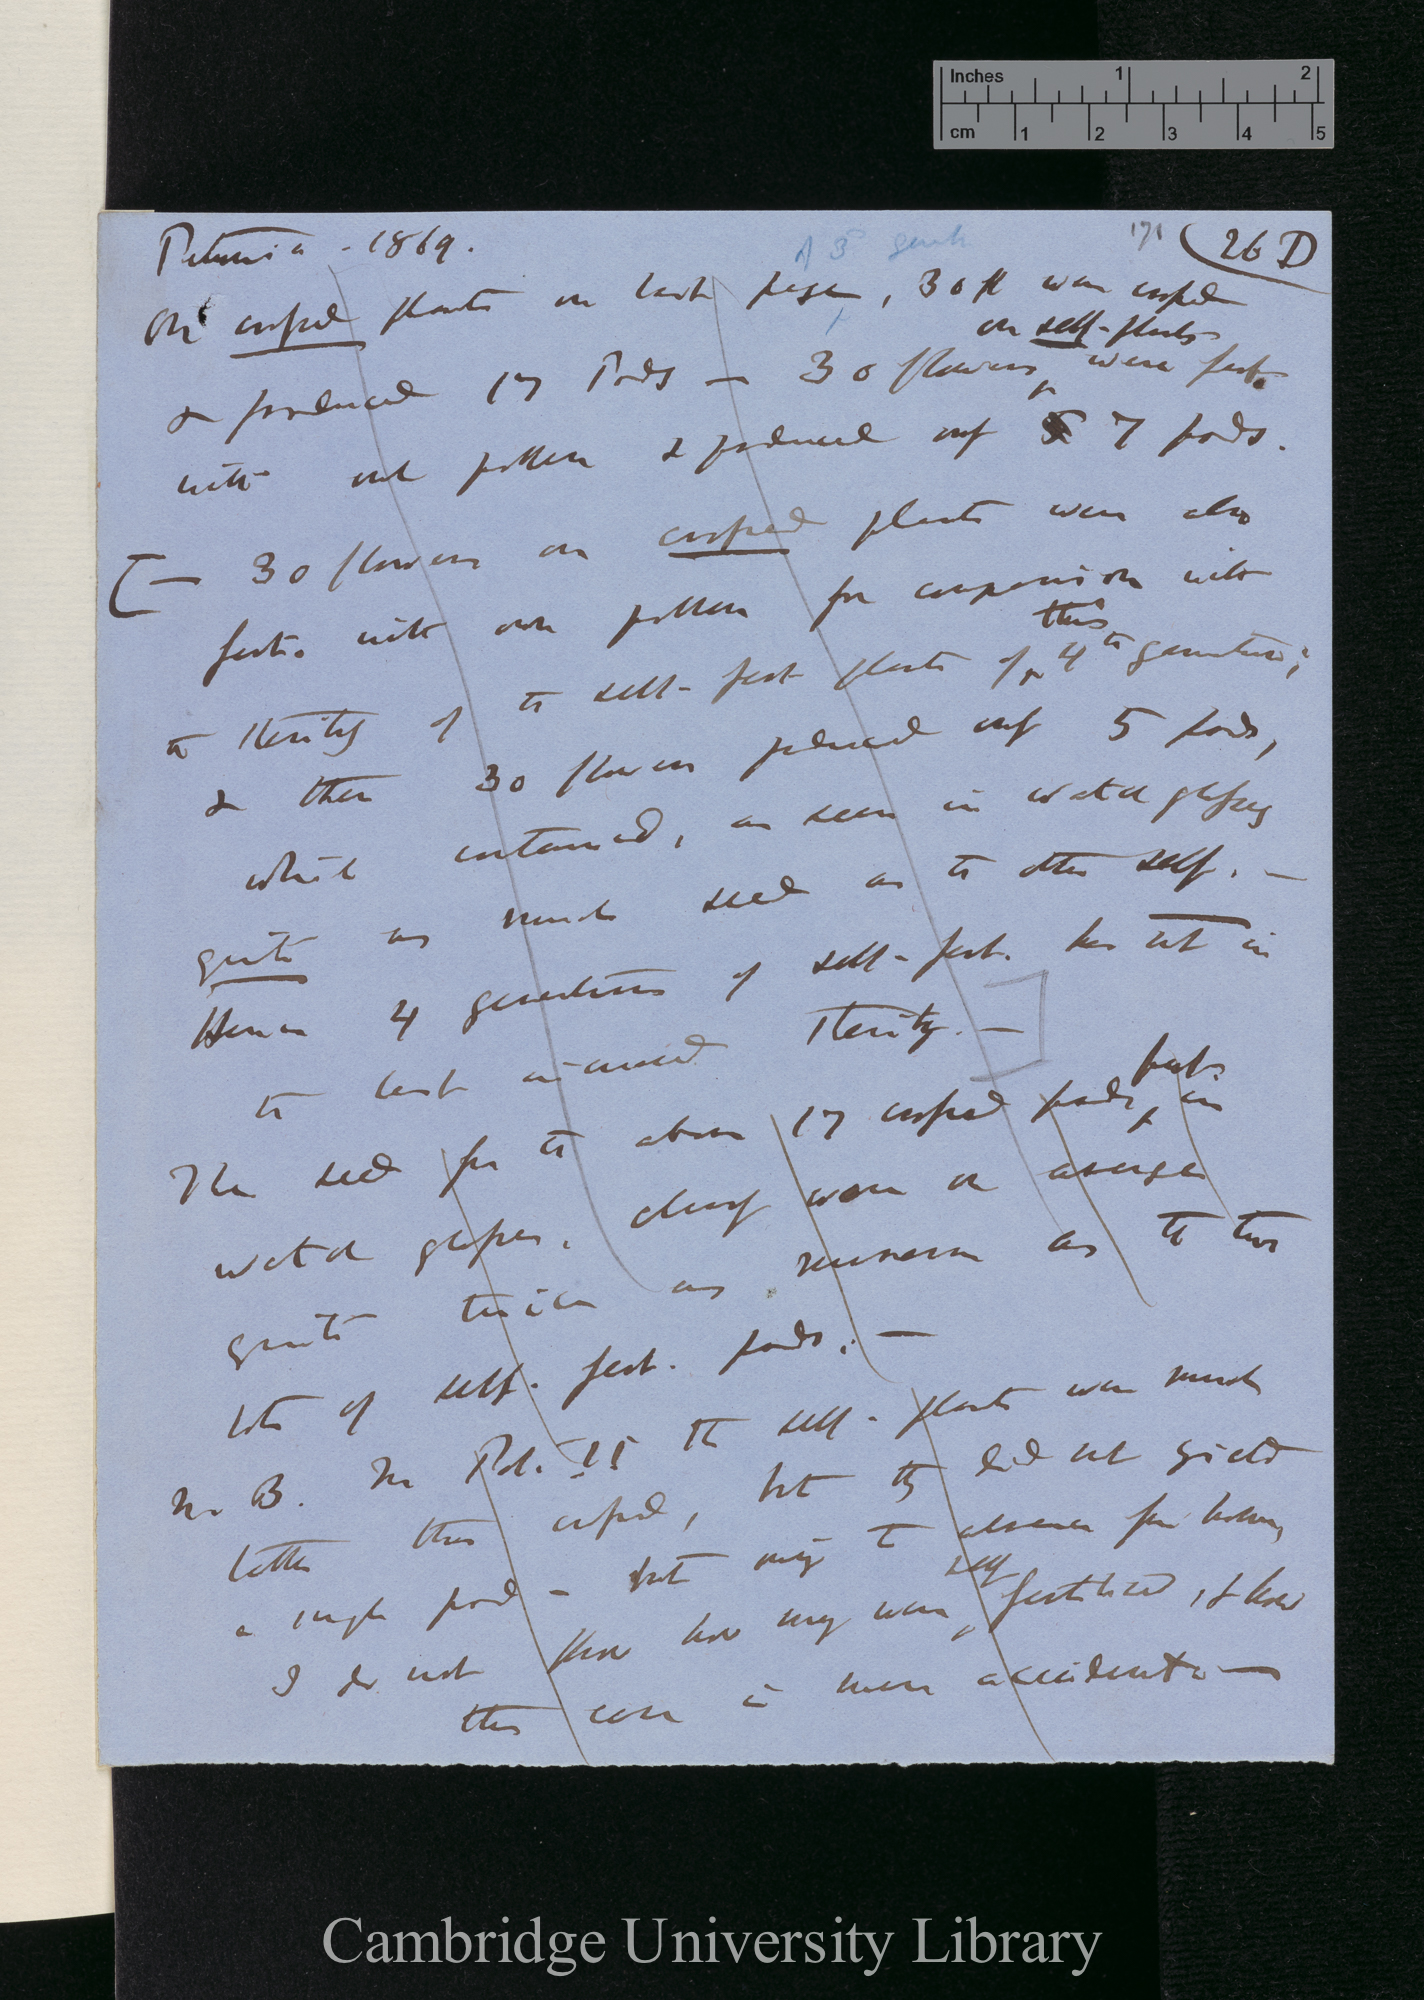 Inches 1 2
cm 1 2 3 4 5
Petunia - 1869.
171
26 D
of 3d
On crossed plants on last page, 30 fl were crossed
on self-plants
& produced 17 Pods — 30 flowers were fert.
with own pollen & produced only 7 pods.
[— 30 flowers on crossed plants were also
fert. with own pollen for comparison with
this
the sterility of the self-fert plants of 4th generation;
& these 30 flowers produced only 5 pods,
which contained, as seen in watch glasses
quite as much seed as the other self. —
Hence 4 generations of self-fert. has not in
the least increased sterility. —]
The seed from the above 17 crossed pods, in
watch glasses, clearly were on average
quite twice as numerous as the two
lots of self-fert. pods. —
N. B. In Pot. II the self-plants were much
better than crossed, but they did not yield
a single pod — but owing to absence from home,
self
I do not know how many were fertilized, & how
this case is mere accident —
Cambridge University Library